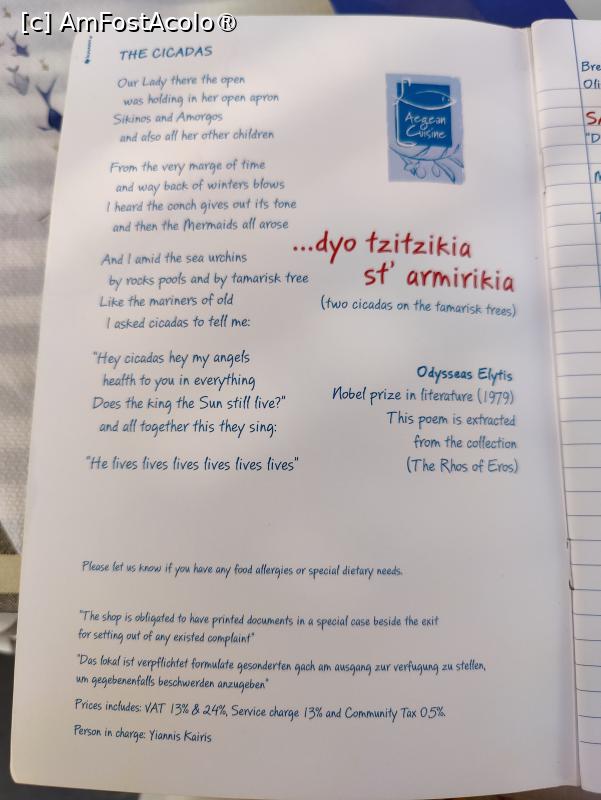 [c] AmFostAcolo®
THE CICADAS
Our Lady there the open
was holding in her open apron
Sikinos and Amorgos
and also all her other children
From the very marge of time
and way back of winters blows
I heard the conch gives out its tone
and then the Mermaids all arose
And I amid the sea urchins
by rocks pools and by tamarisk tree
Like the mariners of old
I asked cicadas to tell me:
"Hey cicadas hey my angels
health to you in everything
Does the king the Sun still live?"
and all together this they sing:
"He lives lives lives lives lives lives"
Aegean
Cuisine
...dyo tzitzikia
st' armirikia
(two cicadas on the tamarisk trees)
Odysseas Elytis
Nobel prize in literature (1979)
This poem is extracted
from the collection
(The Rhos of Eros)
Please let us know if you have any food allergies or special dietary needs.
"The shop is obligated to have printed documents in a special case beside the exit
for setting out of any existed complaint"
"Das lokal ist verpflichtet formulate gesonderten gach am ausgang zur verfugung zu stellen,
um gegebenenfalls beschwerden anzugeben"
Prices includes: VAT 13% & 24%, Service charge 13% and Community Tax 0.5%.
Person in charge: Yiannis Kairis
Bre
Oli
"D